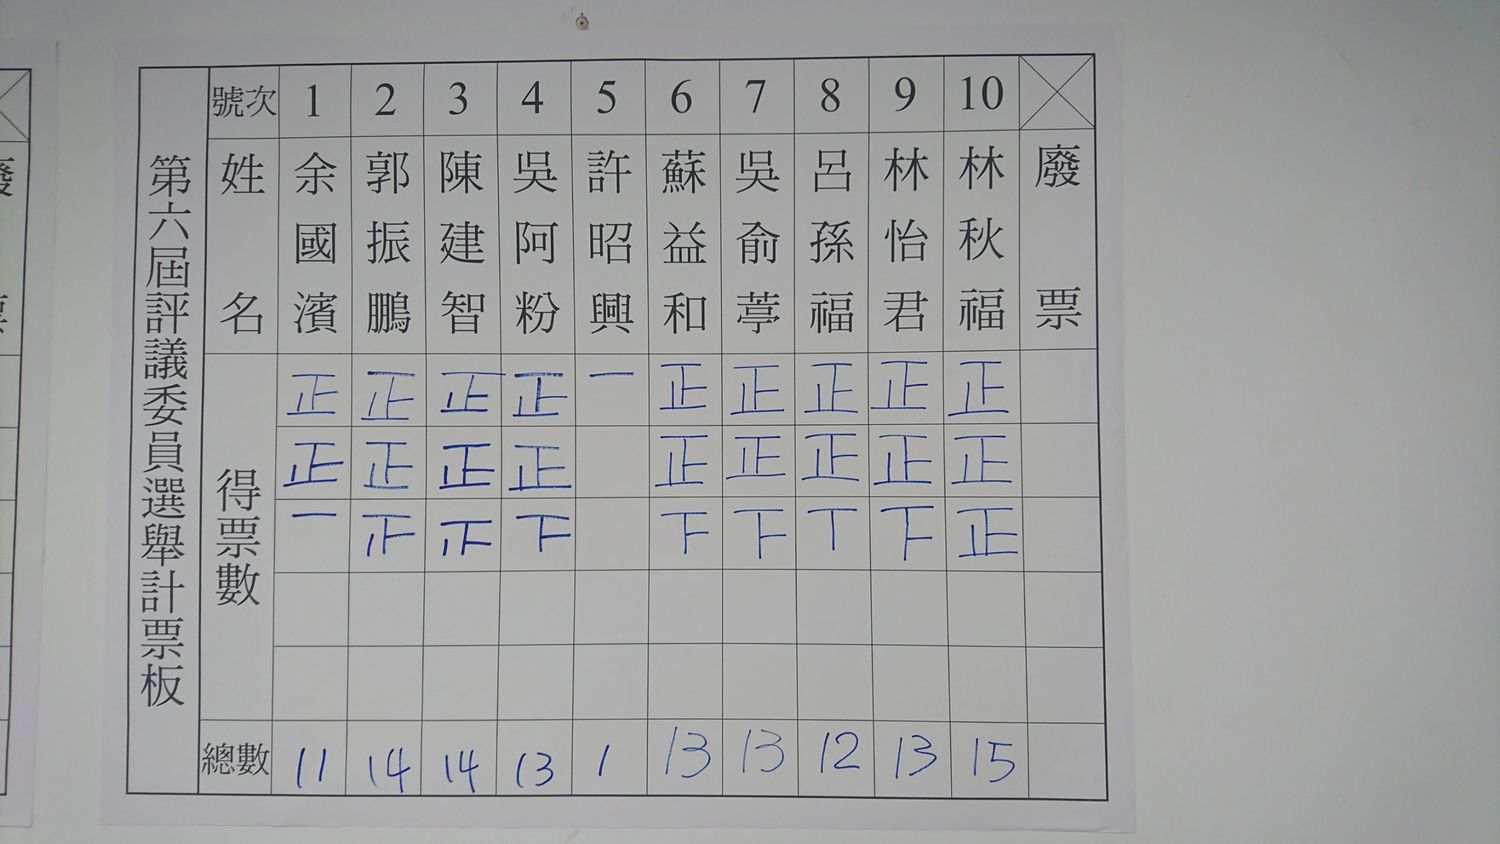 第六屆評議委員選舉計票板
號次 1 2 3 4 5 6 7 8 9 10
姓名 余國濱 郭振鵬 陳建智 吳阿粉 許昭興 蘇益和 吳俞葶 呂孫福 林怡君 林秋福 廢票
得票數
正 正 正 正 一 正 正 正 正 正
正 正 正 正 正 正 正 正 正
一 下 下 丅 下 正
總數 11 14 14 13 1 13 13 12 13 15